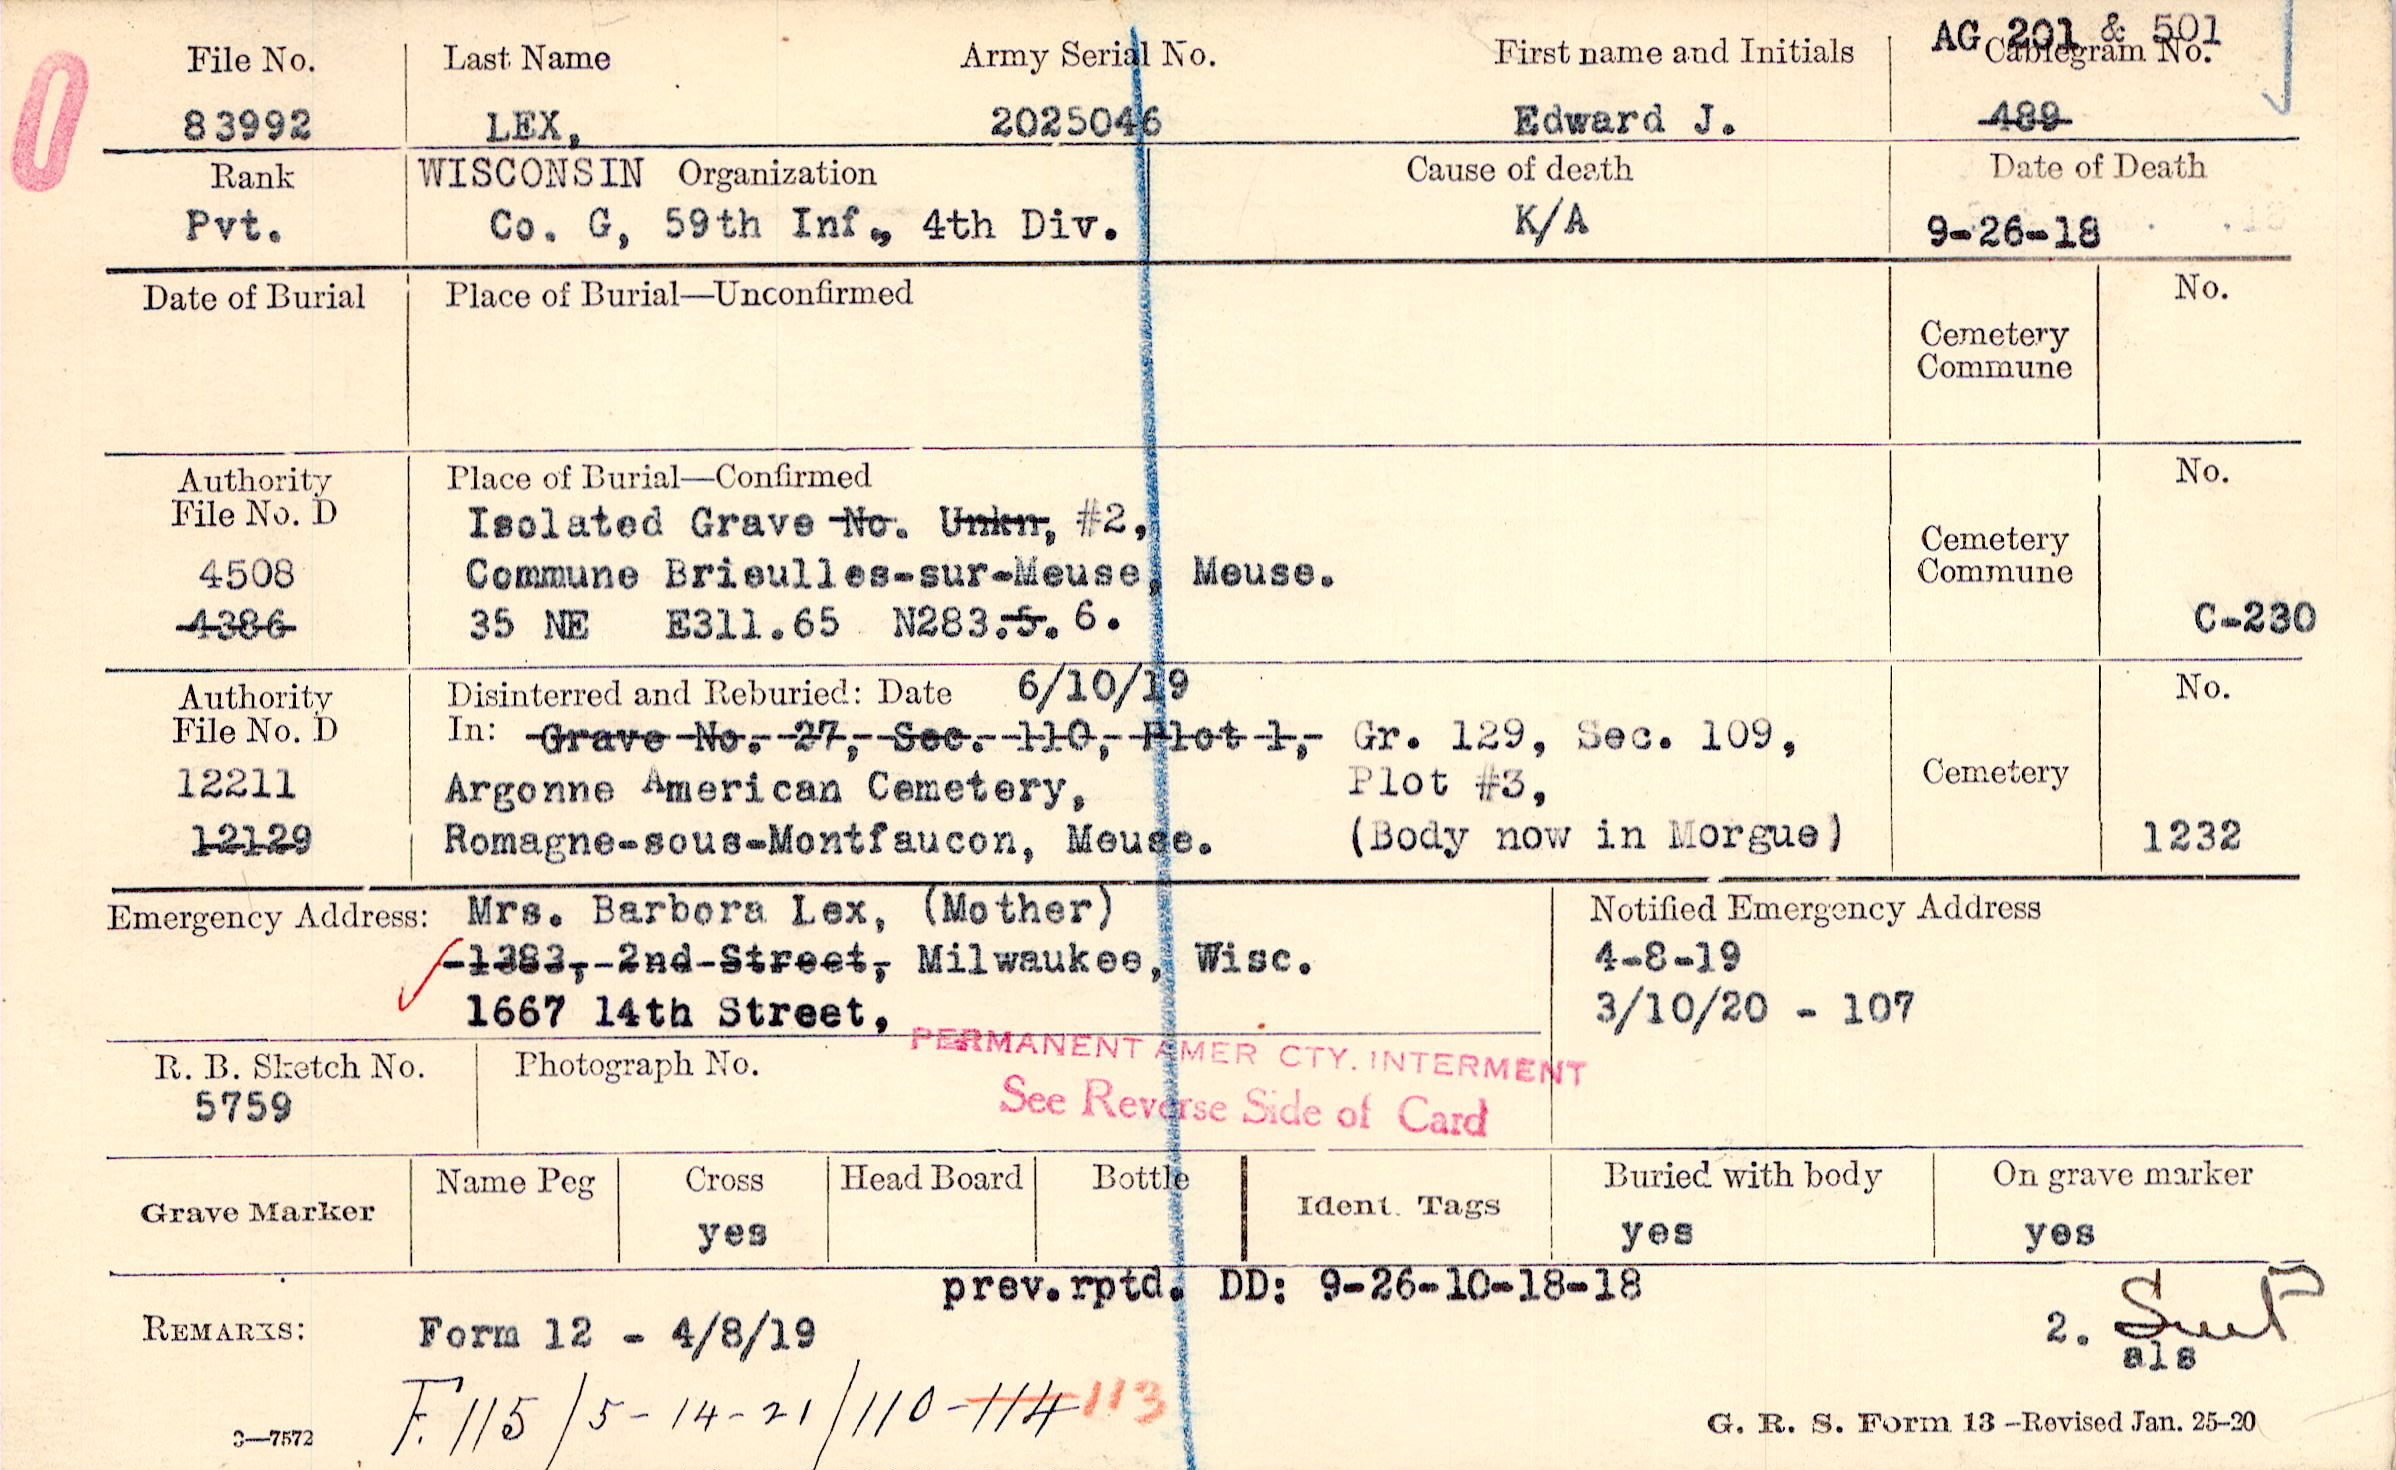 AG 201 & 501
File No. Last Name Army Serial No. First name and Initials Cablegram No.
83992 LEX, 2025046 Edward J. 489
Rank WISCONSIN Organization Cause of death Date of Death
Pvt. Co. G, 59th Inf., 4th Div. K/A 9-26-18
Date of Burial Place of Burial—Unconfirmed No.
Cemetery
Commune
Authority Place of Burial—Confirmed No.
File No. D Isolated Grave No. Unkn, #2,
Cemetery
4508 Commune Brieulles-sur-Meuse, Meuse. Commune
4386 35 NE E311.65 N283.5. 6. C-230
Authority Disinterred and Reburied: Date 6/10/19 No.
File No. D In: Grave No. 27, Sec. 110, Plot 1, Gr. 129, Sec. 109,
12211 Argonne American Cemetery, Plot #3, Cemetery
12129 Romagne-sous-Montfaucon, Meuse. (Body now in Morgue) 1232
Emergency Address: Mrs. Barbora Lex, (Mother) Notified Emergency Address
1383, 2nd Street, Milwaukee, Wisc. 4-8-19
1667 14th Street, 3/10/20 - 107
PERMANENT AMER CTY. INTERMENT
R. B. Sketch No. Photograph No.
5759 See Reverse Side of Card
Grave Marker Name Peg Cross Head Board Bottle Ident. Tags Buried with body On grave marker
yes yes yes
prev.rptd. DD: 9-26-10-18-18
REMARKS: Form 12 - 4/8/19 2.
als
F. 115 / 5-14-21 / 110-114 113
3—7572 G. R. S. Form 13 -Revised Jan. 25-20